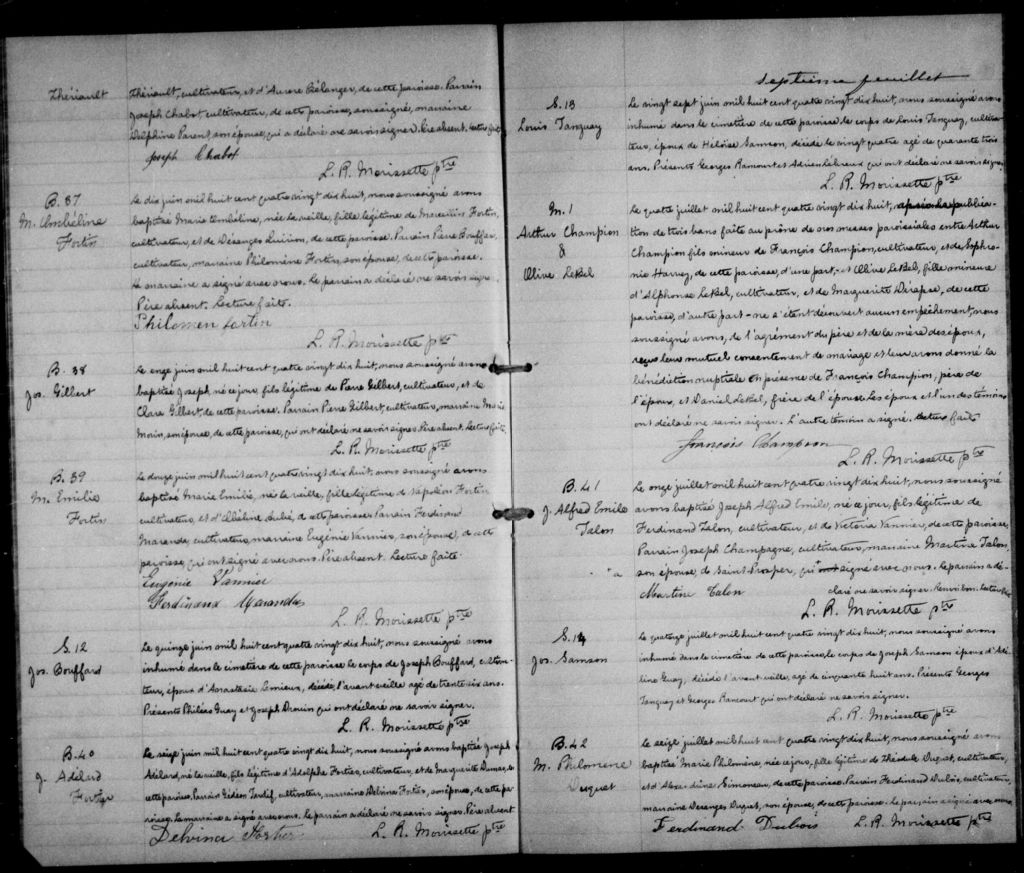 Thériault
Thériault, cultivateur, et d'Aurore Bélanger, de cette paroisse. Parrain
Joseph Chabot, cultivateur, de cette paroisse, soussigné, marraine
Delphine Parent, son épouse, qui a déclaré ne savoir signer. Père absent. Lecture faite.
Joseph Chabot
L. R. Morissette ptre
B. 37
M. Ombéline
Fortin
Le dix juin mil huit cent quatre vingt dix huit, nous soussigné avons
baptisé Marie Ombéline, née la veille, fille légitime de Marcellin Fortin,
cultivateur, et de Désanges Quirion, de cette paroisse. Parrain Pierre Bouffard,
cultivateur, marraine Philomène Fortin, son épouse, de cette paroisse.
La marraine a signé avec nous. Le parrain a déclaré ne savoir signer.
Père absent. Lecture faite.
Philomen Fortin
L. R. Morissette ptre
B. 38
Jos. Gilbert
Le onze juin mil huit cent quatre vingt dix huit, nous soussigné avons
baptisé Joseph, né ce jour, fils légitime de Pierre Gilbert, cultivateur, et de
Clare Gilbert, de cette paroisse. Parrain Pierre Gilbert, cultivateur, marraine Marie
Morin, son épouse, de cette paroisse, qui ont déclaré ne savoir signer. Père absent. Lecture faite.
L. R. Morissette ptre
B. 39
M. Emilie
Fortin
Le douze juin mil huit cent quatre vingt dix huit, nous soussigné avons
baptisé Marie Emilie, née la veille, fille légitime de Napoléon Fortin
cultivateur, et d' Aubé, de cette paroisse. Parrain Ferdinand
Maranda, cultivateur, marraine Eugénie Vannier, son épouse, de cette
paroisse, qui ont signé avec nous. Père absent. Lecture faite.
Eugenie Vannier
Ferdinand Maranda
L. R. Morissette ptre
S. 12
Jos. Bouffard
Le quinze juin mil huit cent quatre vingt dix huit, nous soussigné avons
inhumé dans le cimetière de cette paroisse le corps de Joseph Bouffard, cultiva-
teur, époux d'Anastasie Lemieux, décédé l'avant veille agé de trente six ans.
Présents Philéas Guay et Joseph Drouin qui ont déclaré ne savoir signer.
L. R. Morissette ptre
B. 40
J. Adélard
Fortier
Le seize juin mil huit cent quatre vingt dix huit, nous soussigné avons baptisé Joseph
Adélard, né la veille, fils légitime d'Adolphe Fortier, cultivateur, et de Marguerite Dumas, de
cette paroisse. Parrain Gédéon Tardif, cultivateur, marraine Delvina Fortier, son épouse, de cette pa-
roisse. La marraine a signé avec nous. Le parrain a déclaré ne savoir signer. Père absent
Delvina Fortier
L. R. Morissette ptre
septième feuillet
S. 13
Louis Tanguay
Le vingt sept juin mil huit cent quatre vingt dix huit, nous soussigné avons
inhumé dans le cimetière de cette paroisse le corps de Louis Tanguay, cultiva-
teur, époux de Héloïse Samson, décédé le vingt quatre agé de quarante trois
ans. Présents Georges Rancourt et Adrien Labreux qui ont déclaré ne savoir signer.
L. R. Morissette ptre
M. 1
Arthur Champion
&
Olive LeBel
Le quatre juillet mil huit cent quatre vingt dix huit, après la publica-
tion de trois bans faite au prône de nos messes paroissiales entre Arthur
Champion fils mineur de François Champion, cultivateur, et de Sophro-
nie Harvey, de cette paroisse, d'une part, et Olive LeBel, fille mineure
d'Alphonse LeBel, cultivateur, et de Marguerite , de cette
paroisse, d'autre part - ne s'étant découvert aucun empêchement, nous
soussigné avons, de l'agrément du père et de la mère des époux,
reçu leur mutuel consentement de mariage et leur avons donné la
bénédiction nuptiale en présence de François Champion, père de
l'époux, et Daniel LeBel, frère de l'épouse. Les époux et l'un des témoins
ont déclaré ne savoir signer. L'autre témoin a signé. Lecture faite
François Champion
L. R. Morissette ptre
B. 41
J. Alfred Emile
Talon
Le onze juillet mil huit cent quatre vingt dix huit, nous soussigné
avons baptisé Joseph Alfred Emile, né ce jour, fils légitime de
Ferdinand Talon, cultivateur, et de Victoria Vannier, de cette paroisse
Parrain Joseph Champagne, cultivateur, marraine Martine Talon,
son épouse, de Saint Prosper, qui a signé avec nous. Le parrain a dé-
Martine Talon
claré ne savoir signer. Lecture faite
L. R. Morissette ptre
S. 14
Jos. Samson
Le quatorze juillet mil huit cent quatre vingt dix huit, nous soussigné avons
inhumé dans le cimetière de cette paroisse, le corps de Joseph Samson époux d'Adé-
line Guay, décédé l'avant veille, agé de cinquante huit ans. Présents Georges
Tanguay et Georges Rancourt qui ont déclaré ne savoir signer.
L. R. Morissette ptre
B. 42
M. Philomène
Duquet
Le seize juillet mil huit cent quatre vingt dix huit, nous soussigné avons
baptisé Marie Philomène, née ce jour, fille légitime de Théodule Duquet, cultivateur,
et d'Alexandrine Simoneau, de cette paroisse. Parrain Ferdinand Dubois, cultivateur,
marraine Desanges Duquet, son épouse, de cette paroisse. Le parrain a signé avec nous.
Ferdinand Dubois
L. R. Morissette ptre